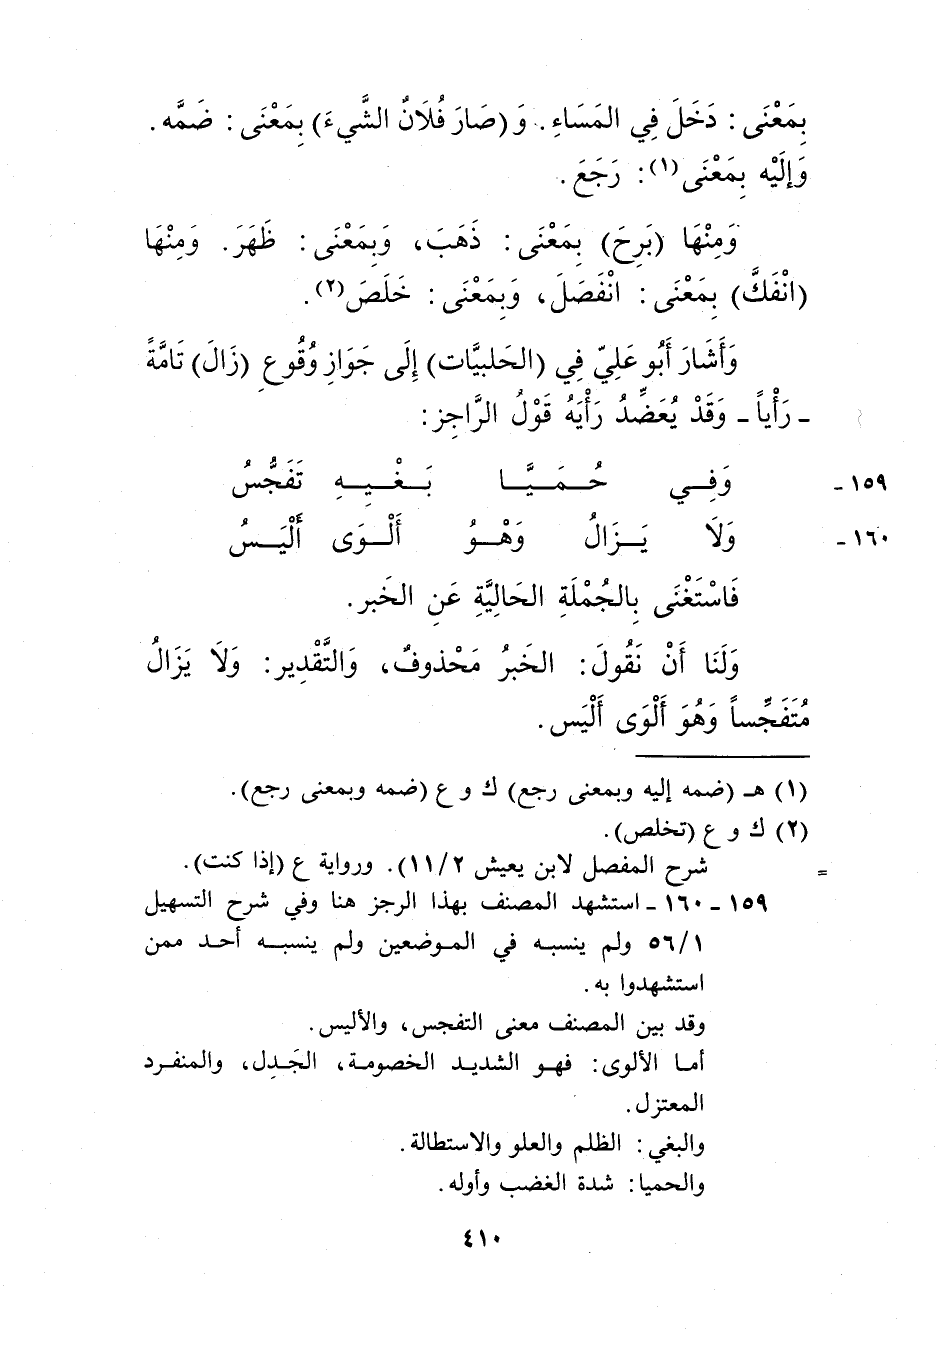 بِمَعْنَى: دَخَلَ فِي المَسَاءِ. وَ (صَارَ فُلَانٌ الشَّيءَ) بِمَعْنَى: ضَمَّه.
وَإلَيْه بِمَعْنَى(١): رَجَعَ.
وَمِنْهَا (بَرِحَ) بِمَعْنَى: ذَهَبَ، وَبِمَعْنَى: ظَهَرَ. وَمِنْهَا
(انْفَكَّ) بِمَعْنَى: انْفَصَلَ، وَبِمَعْنَى: خَلَصَ(٢).
وَأَشَارَ أَبُو عَلِيّ فِي (الحَلبيَّات) إِلَى جَوَازِ وُقُوعِ (زَالَ) تَامَّةً
- رَأْياً - وَقَدْ يُعَضِّدُ رَأْيَهُ قَوْلُ الرَّاجِزِ:
١٥٩- وَفِي حُمَيَّا بَغْيِهِ تَفَجُّسُ
١٦٠- وَلَا يَزَالُ وَهْوُ أَلْوَى أَلْيَسُ
فَاسْتَغْنَى بِالجُمْلَةِ الحَالِيَّةِ عَنِ الخَبر.
وَلَنَا أَنْ نَقُولَ: الخَبرُ مَحْذوفٌ، وَالتَّقْدِير: وَلَا يَزَالُ
مُتَفَجِّساً وَهُوَ أَلْوَى أَلْيَس.
(١) هـ (ضمه إليه وبمعنى رجع) ك و ع (ضمه وبمعنى رجع).
(٢) ك و ع (تخلص).
= شرح المفصل لابن يعيش ١١/٢). ورواية ع (إذا كنت).
١٥٩ - ١٦٠ - استشهد المصنف بهذا الرجز هنا وفي شرح التسهيل
٥٦/١ ولم ينسبه في الموضعين ولم ينسبه أحد ممن
استشهدوا به.
وقد بين المصنف معنى التفجس، والأليس.
أما الألوى: فهو الشديد الخصومة، الجَدِل، والمنفرد
المعتزل.
والبغي: الظلم والعلو والاستطالة.
والحميا: شدة الغضب وأوله.
٤١٠